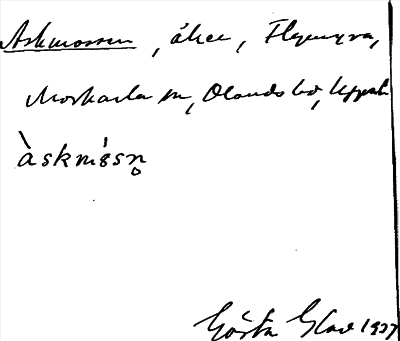 Askmossen, åker, Flymyra,
Morkarla sn, Olands hd, Uppsala
àskmósn̥
Gösta Glad 1937